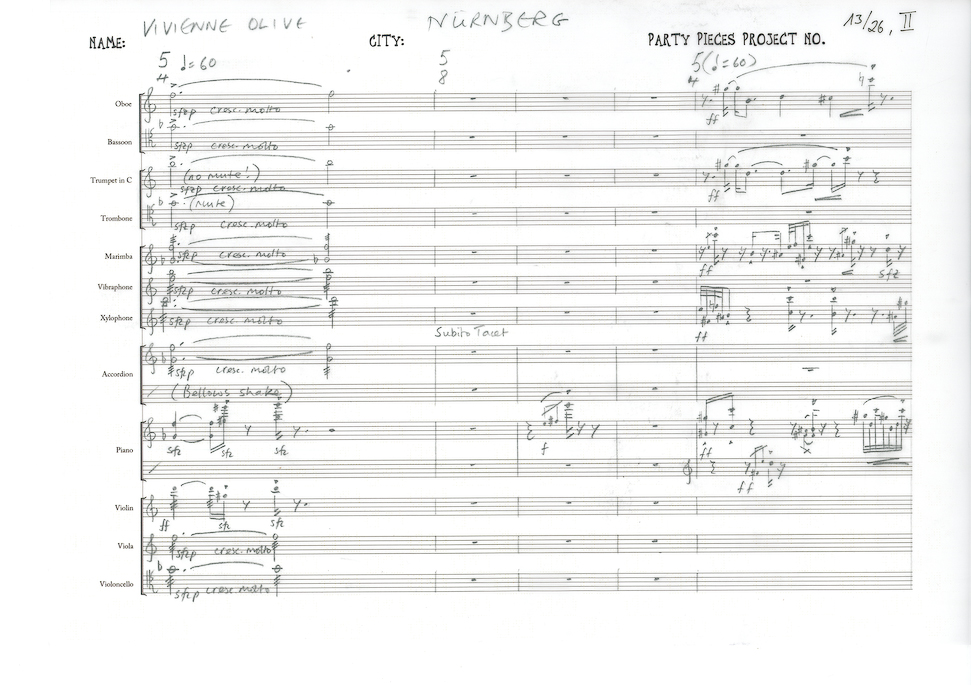 NAME: VIVIENNE OLIVE CITY: NÜRNBERG PARTY PIECES PROJECT NO. 13/26, II
5/4 ♩=60 5/8 5/4 (♩=60)
Oboe sfzp cresc. molto ff
Bassoon sfzp cresc. molto
Trumpet in C (no mute!) sfzp cresc. molto ff
Trombone (mute) sfzp cresc. molto
Marimba sfzp cresc. molto ff sfz
Vibraphone sfzp cresc. molto
Xylophone sfzp cresc. molto ff
Subito Tacet
Accordion sfzp cresc. molto
(Bellows shake)
Piano sfz sfz sfz f ff
ff
Violin ff sfz sfz
Viola sfzp cresc. molto
Violoncello sfzp cresc. molto